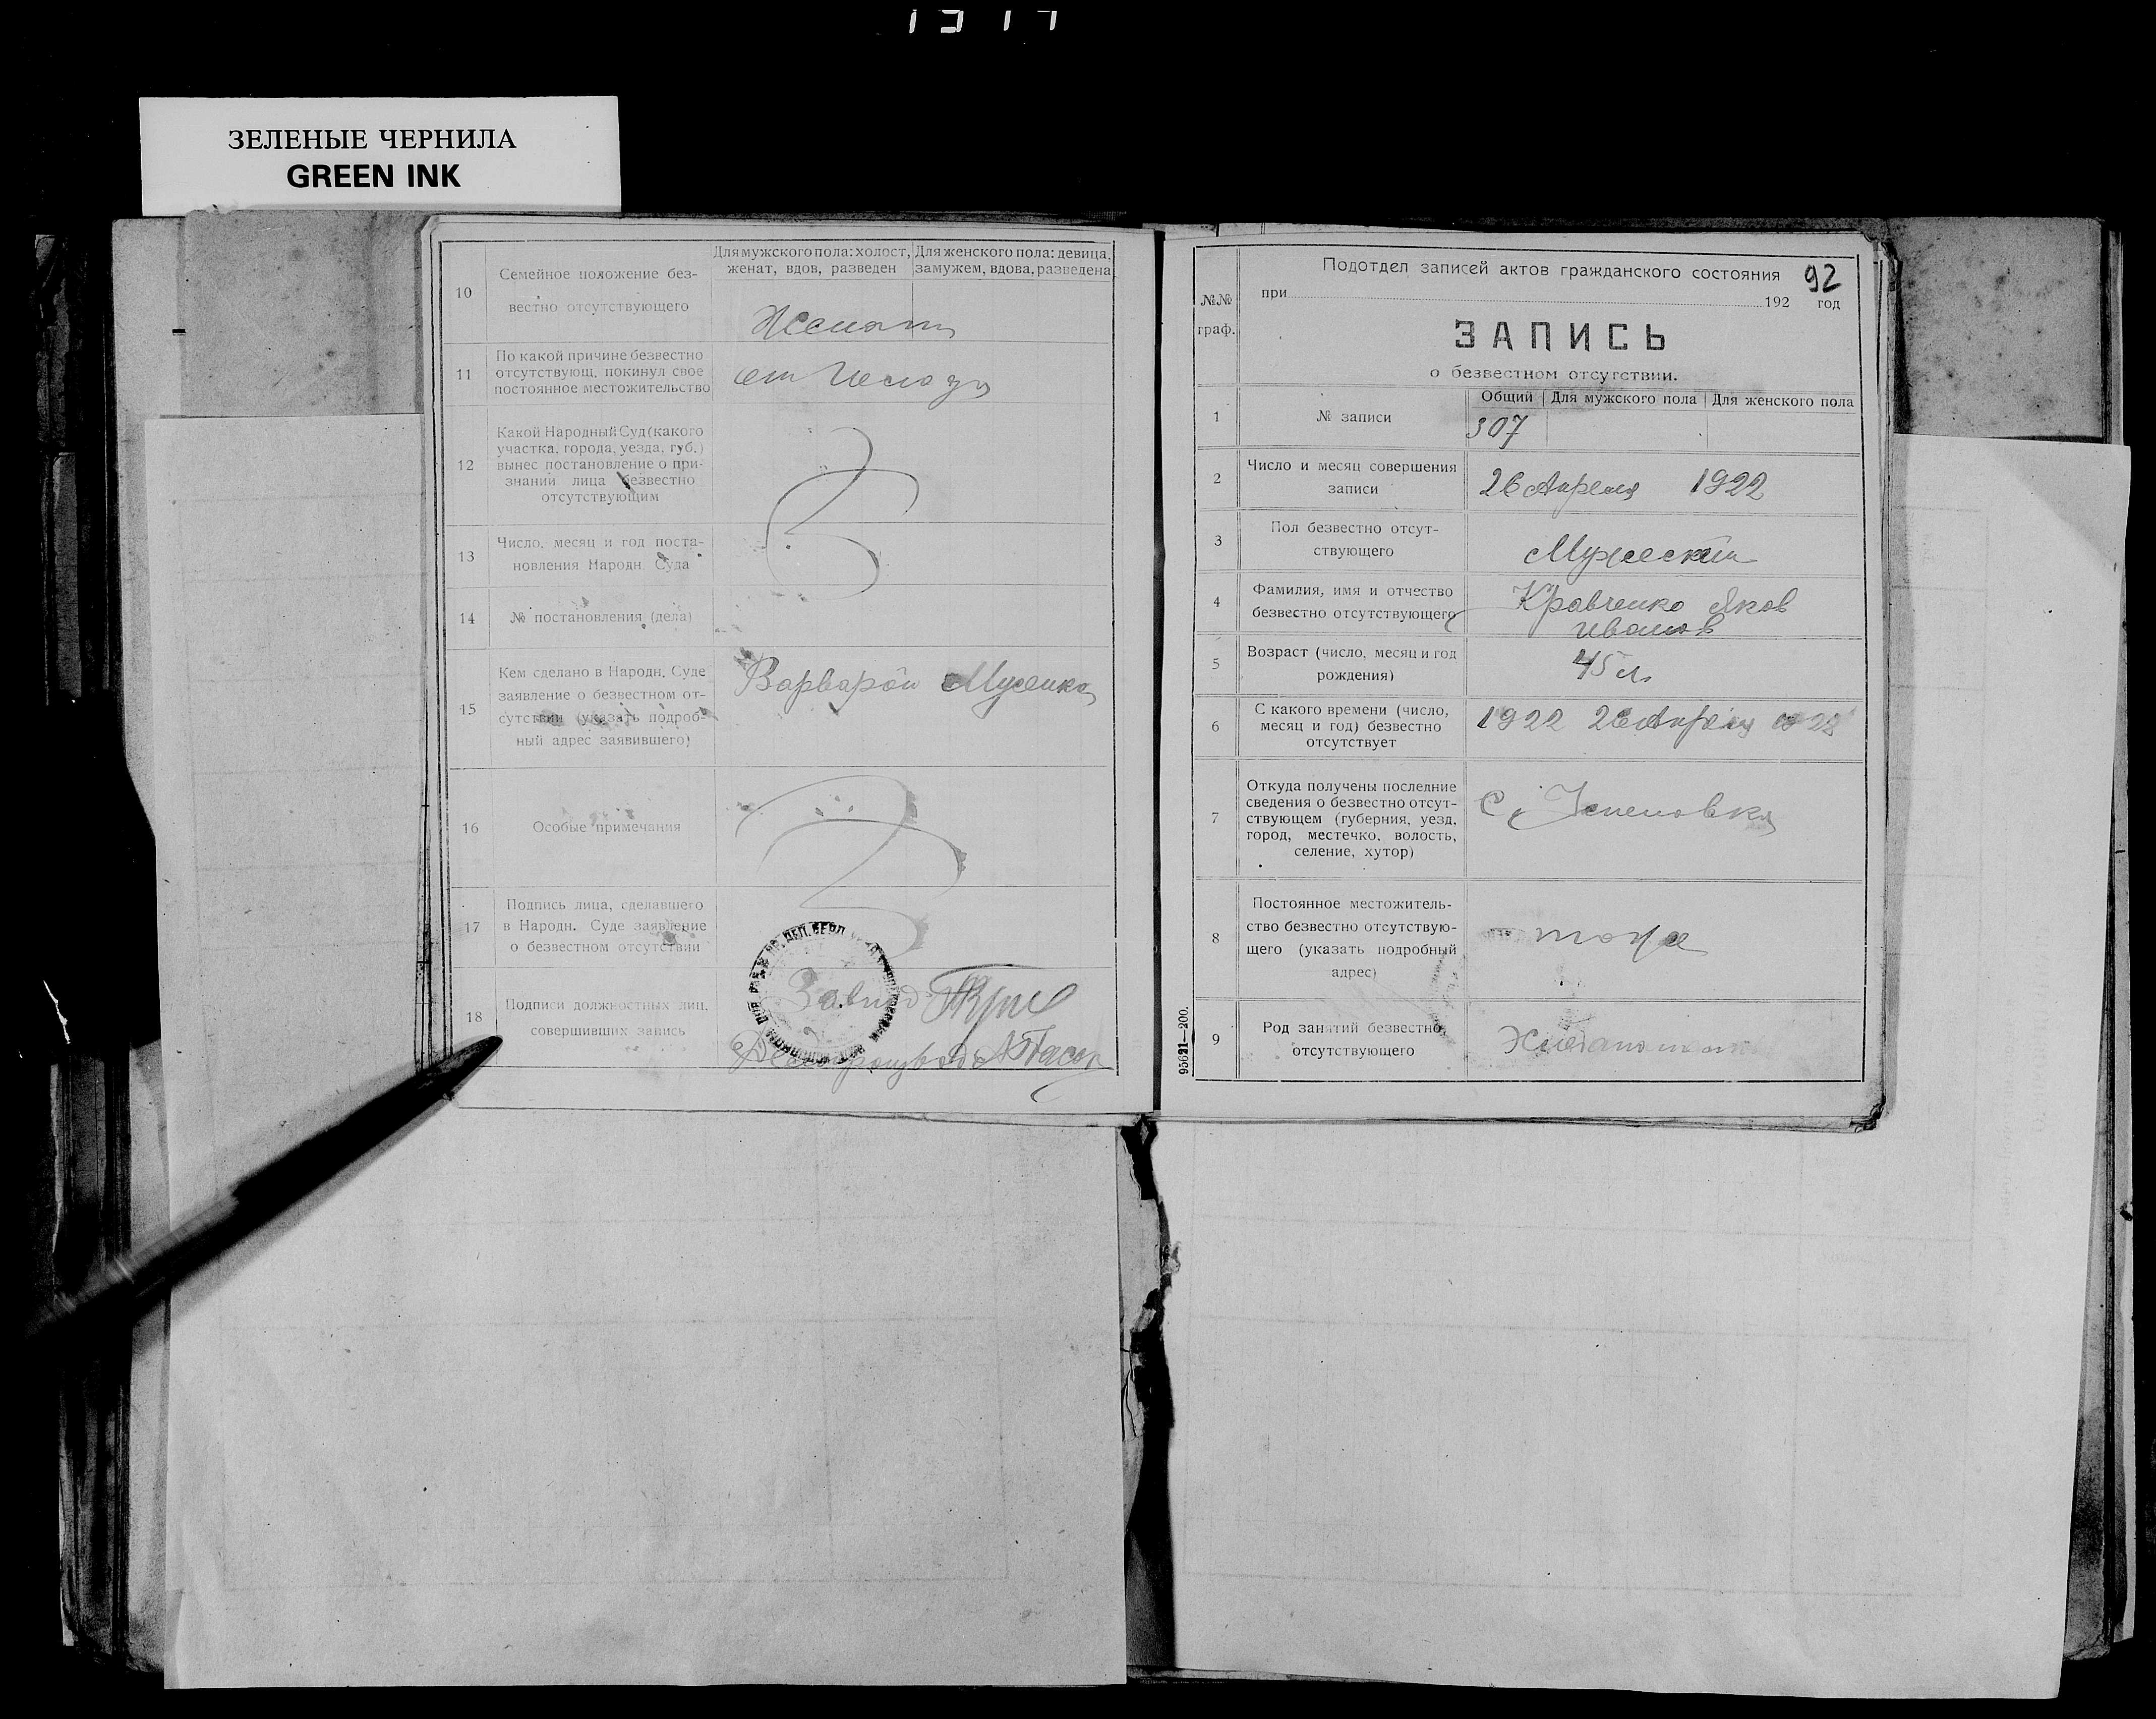 ЗЕЛЕНЫЕ ЧЕРНИЛА
GREEN INK
10
Семейное положение без-
вестно отсутствующего
Для мужского пола: холост,
женат, вдов, разведен
Для женского пола: девица,
замужем, вдова, разведена
Женат
11
По какой причине безвестно
отсутствующ. покинул свое
постоянное местожительство
12
Какой Народный Суд (какого
участка, города, уезда, губ.)
вынес постановление о при-
знании лица безвестно
отсутствующим
13
Число, месяц и год поста-
новления Народн. Суда
14
№ постановления (дела)
15
Кем сделано в Народн. Суде
заявление о безвестном от-
сутствии (указать подроб-
ный адрес заявившего)
Варварой
16
Особые примечания
17
Подпись лица, сделавшего
в Народн. Суде заявление
о безвестном отсутствии
18
Подписи должностных лиц,
совершивших запись
92
№№
граф.
Подотдел записей актов гражданского состояния
при 192 год
ЗАПИСЬ
о безвестном отсутствии.
1
№ записи
Общий
Для мужского пола
Для женского пола
307
2
Число и месяц совершения
записи
26 Апреля 1922
3
Пол безвестно отсут-
ствующего
Мужеский
4
Фамилия, имя и отчество
безвестно отсутствующего
Кравченко Яков
Иванов
5
Возраст (число, месяц и год
рождения)
45 л.
6
С какого времени (число,
месяц и год) безвестно
отсутствует
1922 26 Апреля
7
Откуда получены последние
сведения о безвестно отсут-
ствующем (губерния, уезд,
город, местечко, волость,
селение, хутор)
С. Успеновка
8
Постоянное местожитель-
ство безвестно отсутствую-
щего (указать подробный
адрес)
тоже
9
Род занятий безвестно
отсутствующего
95621—200.